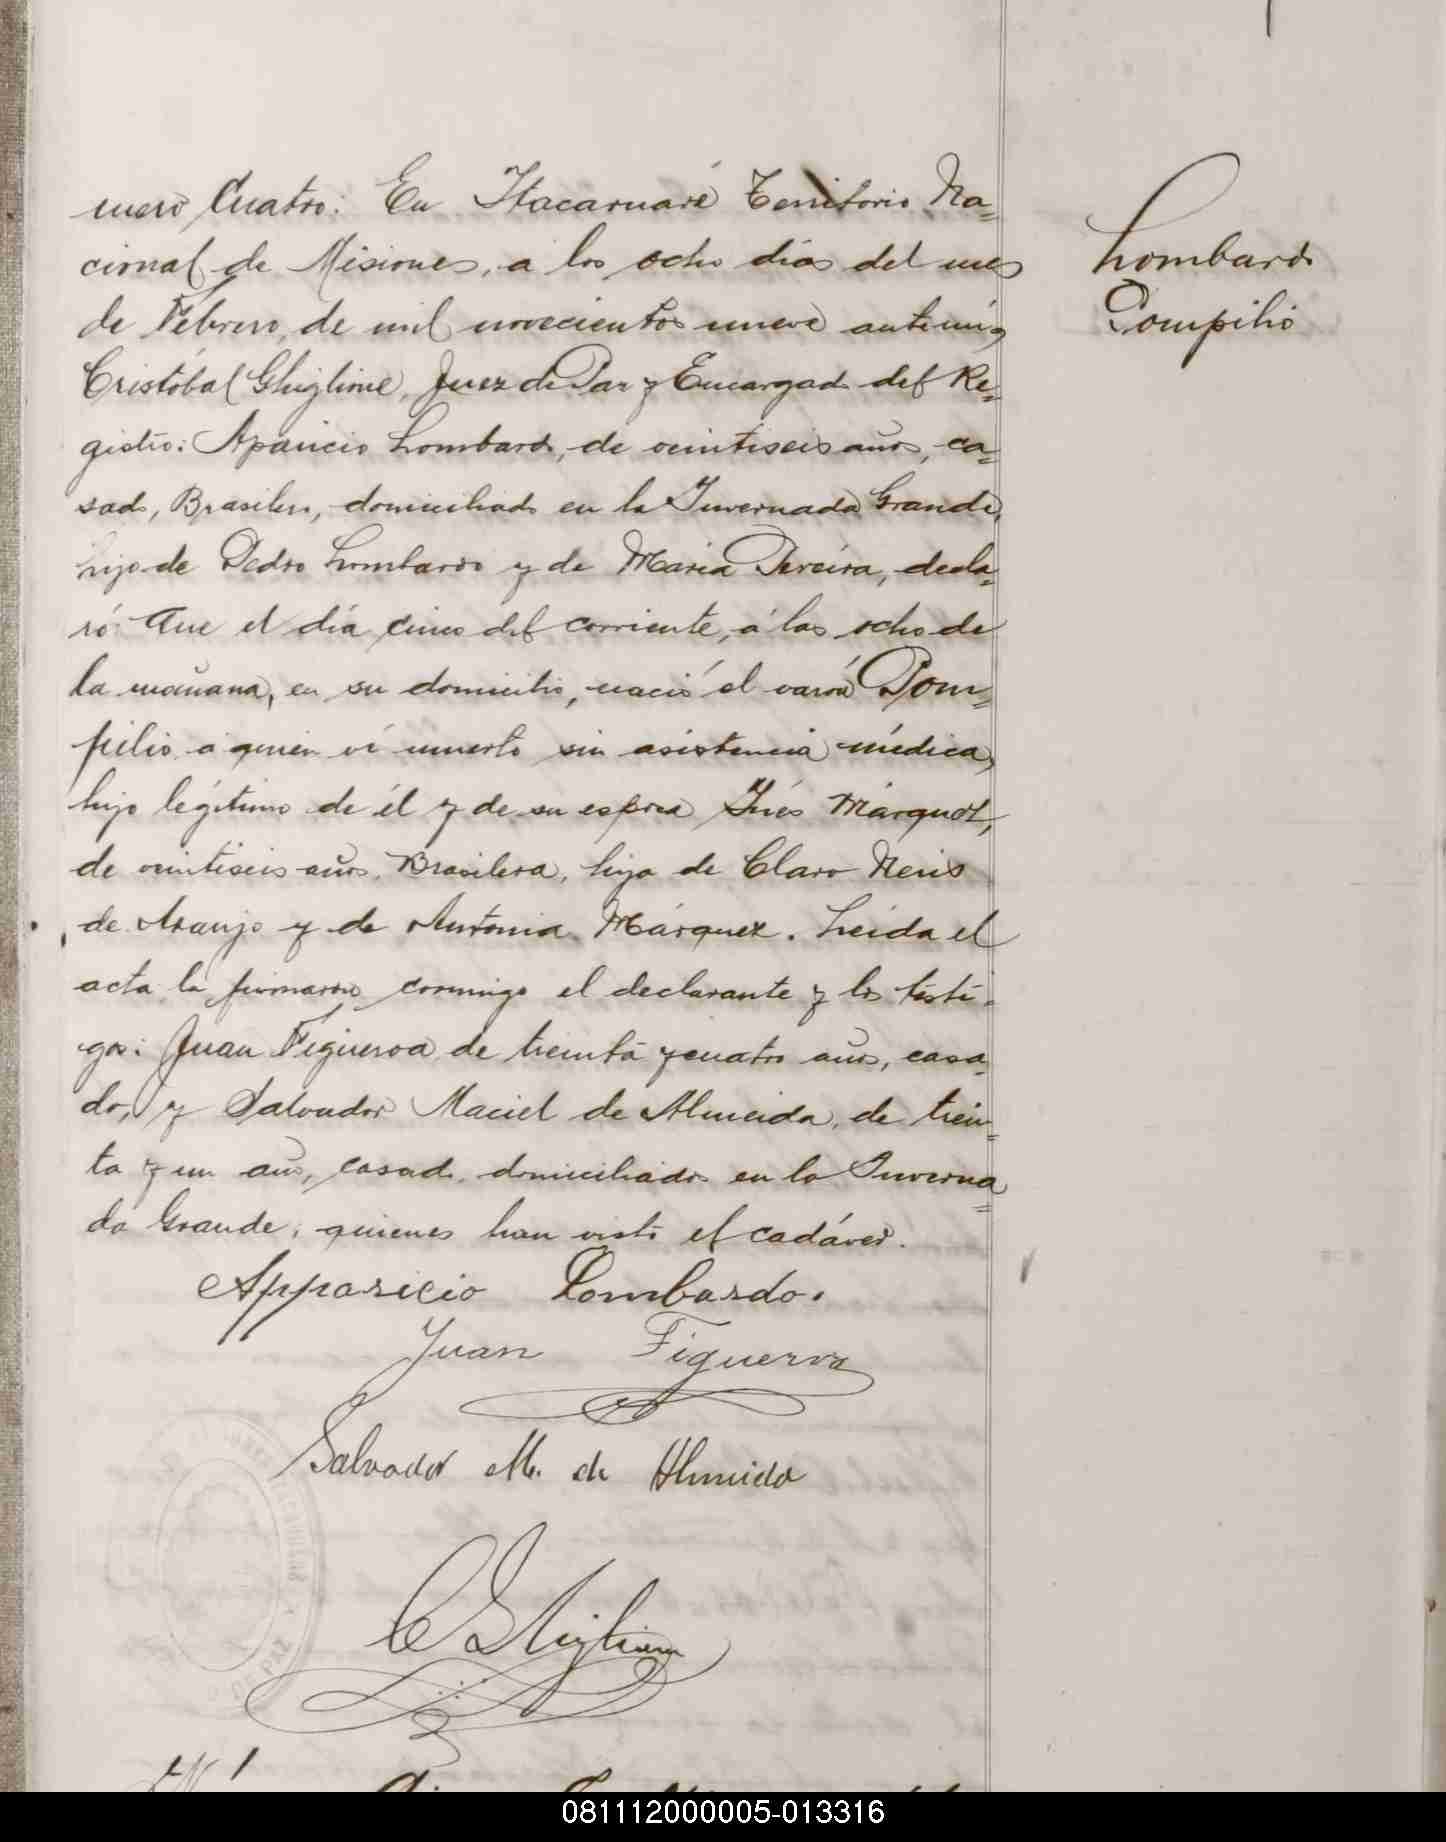 mero Cuatro: En Itacaruaré Territorio Na=
cional de Misiones, a los ocho días del mes
de Febrero, de mil novecientos nueve ante mí,
Cristóbal Ghiglione, Juez de Paz y Encargado del Re=
gistro: Aparicio Lombardo, de veintiseis años, ca=
sado, Brasilero, domiciliado en la Invernada Grande,
hijo de Pedro Lombardo y de María Pereira, decla=
ró: Que el día cinco del corriente, á las ocho de
la mañana, en su domicilio, nació el varón Pom=
pilio á quien ví muerto sin asistencia médica,
hijo legítimo de él y de su esposa Inés Márquez,
de veintiseis años, Brasilera, hija de Claro Neris
de Araujo y de Antonia Márquez. Leida el
acta la firmaron conmigo el declarante y los testi=
gos: Juan Figueroa de treinta y cuatro años, casa=
do, y Salvador Maciel de Almeida, de trein=
ta y un años, casado, domiciliados en la Inverna=
da Grande; quienes han visto el cadáver.
Apparicio Lombardo.
Juan Figueroa
Salvador M. de Almeida
C Ghiglione
Lombardo
Pompilio
081112000005-013316